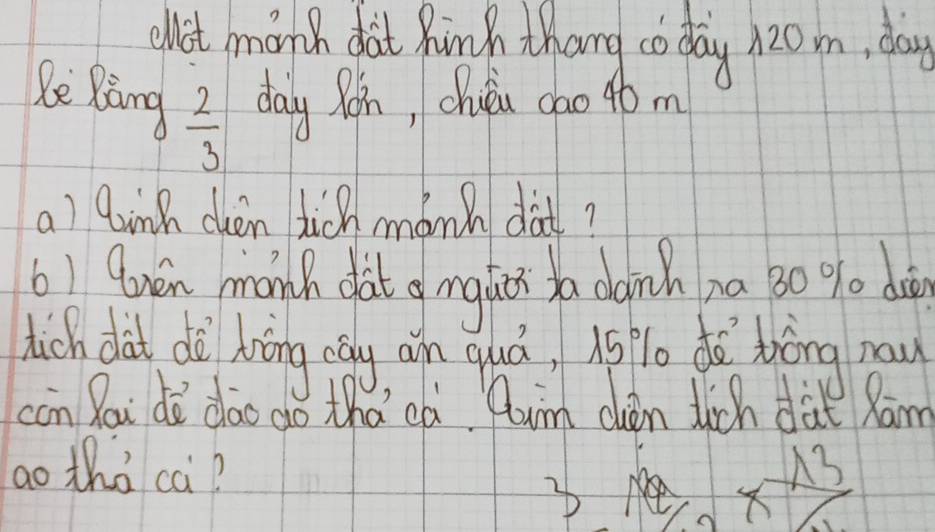 Một mảnh đất hình thang có đáy 120 m, đáy
bé bằng 2/3 đáy lớn, chiều cao 40 m
a) Tính diện tích mảnh đất ?
b) Trên mảnh đất người ta dành ra 30 % diện
tích đất để trồng cây ăn quả, 15% để trồng rau
còn lại để đào ao thả cá. Tìm diện tích đất làm
ao thả cá ?
3 x 13